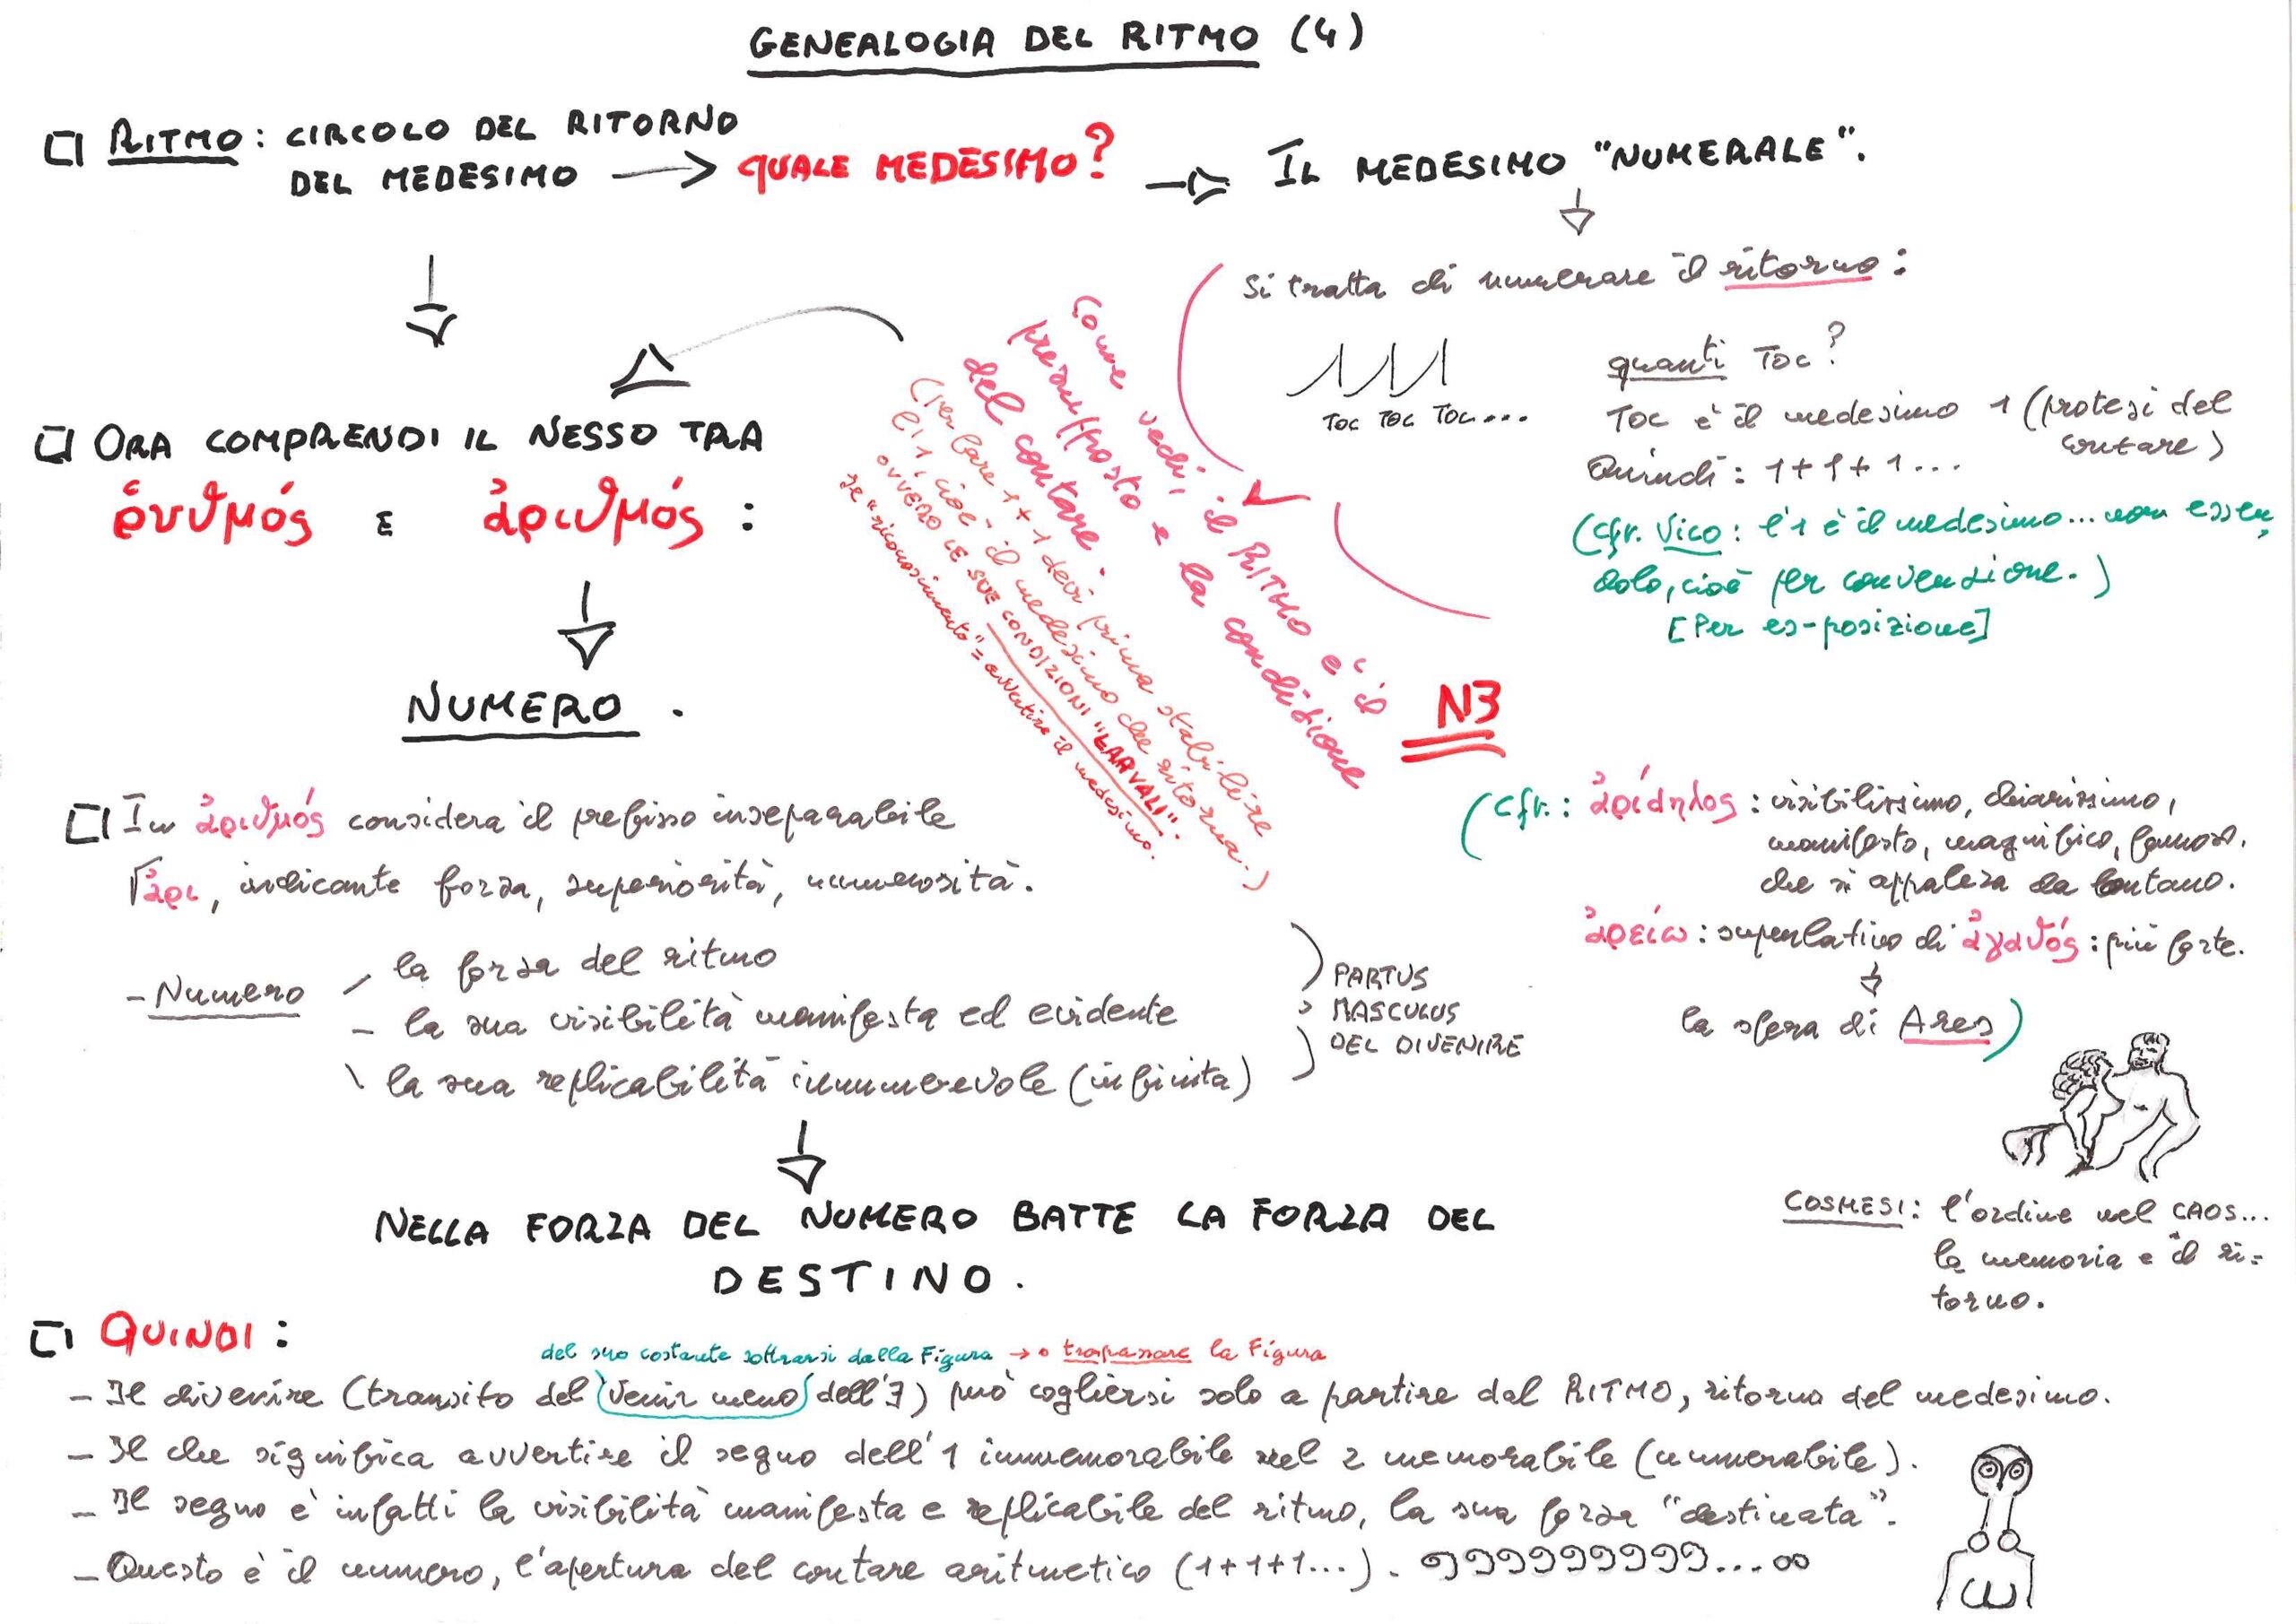 GENEALOGIA DEL RITMO (4)
RITMO: CIRCOLO DEL RITORNO
DEL MEDESIMO → QUALE MEDESIMO? → IL MEDESIMO "NUMERALE".
Si tratta di numerare il ritorno:
TOC TOC TOC...
quanti Toc?
Toc è il medesimo 1 (protesi del
contare)
Quindi: 1+1+1...
(Cfr. Vico: l'1 è il medesimo... non essen,
dolo, cioè per convenzione.)
[Per es-posizione]
Come vedi, il RITMO è il
presupposto e la condizione
del contare.
(per fare 1+1 devi prima stabilire
l'1, cioè il medesimo che ritorna.)
OVVERO LE SUE CONDIZIONI "LARVALI".
Se "riconoscimento" = avvertire il medesimo.
N3
ORA COMPRENDI IL NESSO TRA
ῥυθμός E ἀριθμός:
NUMERO.
In ἀριθμός considera il prefisso inseparabile
√ἀρι, indicante forza, superiorità, numerosità.
(Cfr.: ἀρίδηλος: visibilissimo, chiarissimo,
manifesto, magnifico, famoso,
che si appalesa da lontano.
ἀρείω: superlativo di ἀγαθός: più forte.
la sfera di Ares)
- Numero
la forza del ritmo
- la sua visibilità manifesta ed evidente
\ la sua replicabilità innumerevole (infinita)
PARTUS
MASCULUS
DEL DIVENIRE
NELLA FORZA DEL NUMERO BATTE LA FORZA DEL
DESTINO.
COSMESI: l'ordine nel CAOS...
la memoria e il ri=
torno.
QUINDI:
del suo costante sottrarsi dalla Figura → o trapassare la Figura
- Il divenire (transito del venir meno dell'∃) può cogliersi solo a partire dal RITMO, ritorno del medesimo.
- Il che significa avvertire il segno dell'1 immemorabile nel 2 memorabile (numerabile).
- Il segno è infatti la visibilità manifesta e replicabile del ritmo, la sua forza "destinata".
- Questo è il numero, l'apertura del contare aritmetico (1+1+1...). 999999999...∞